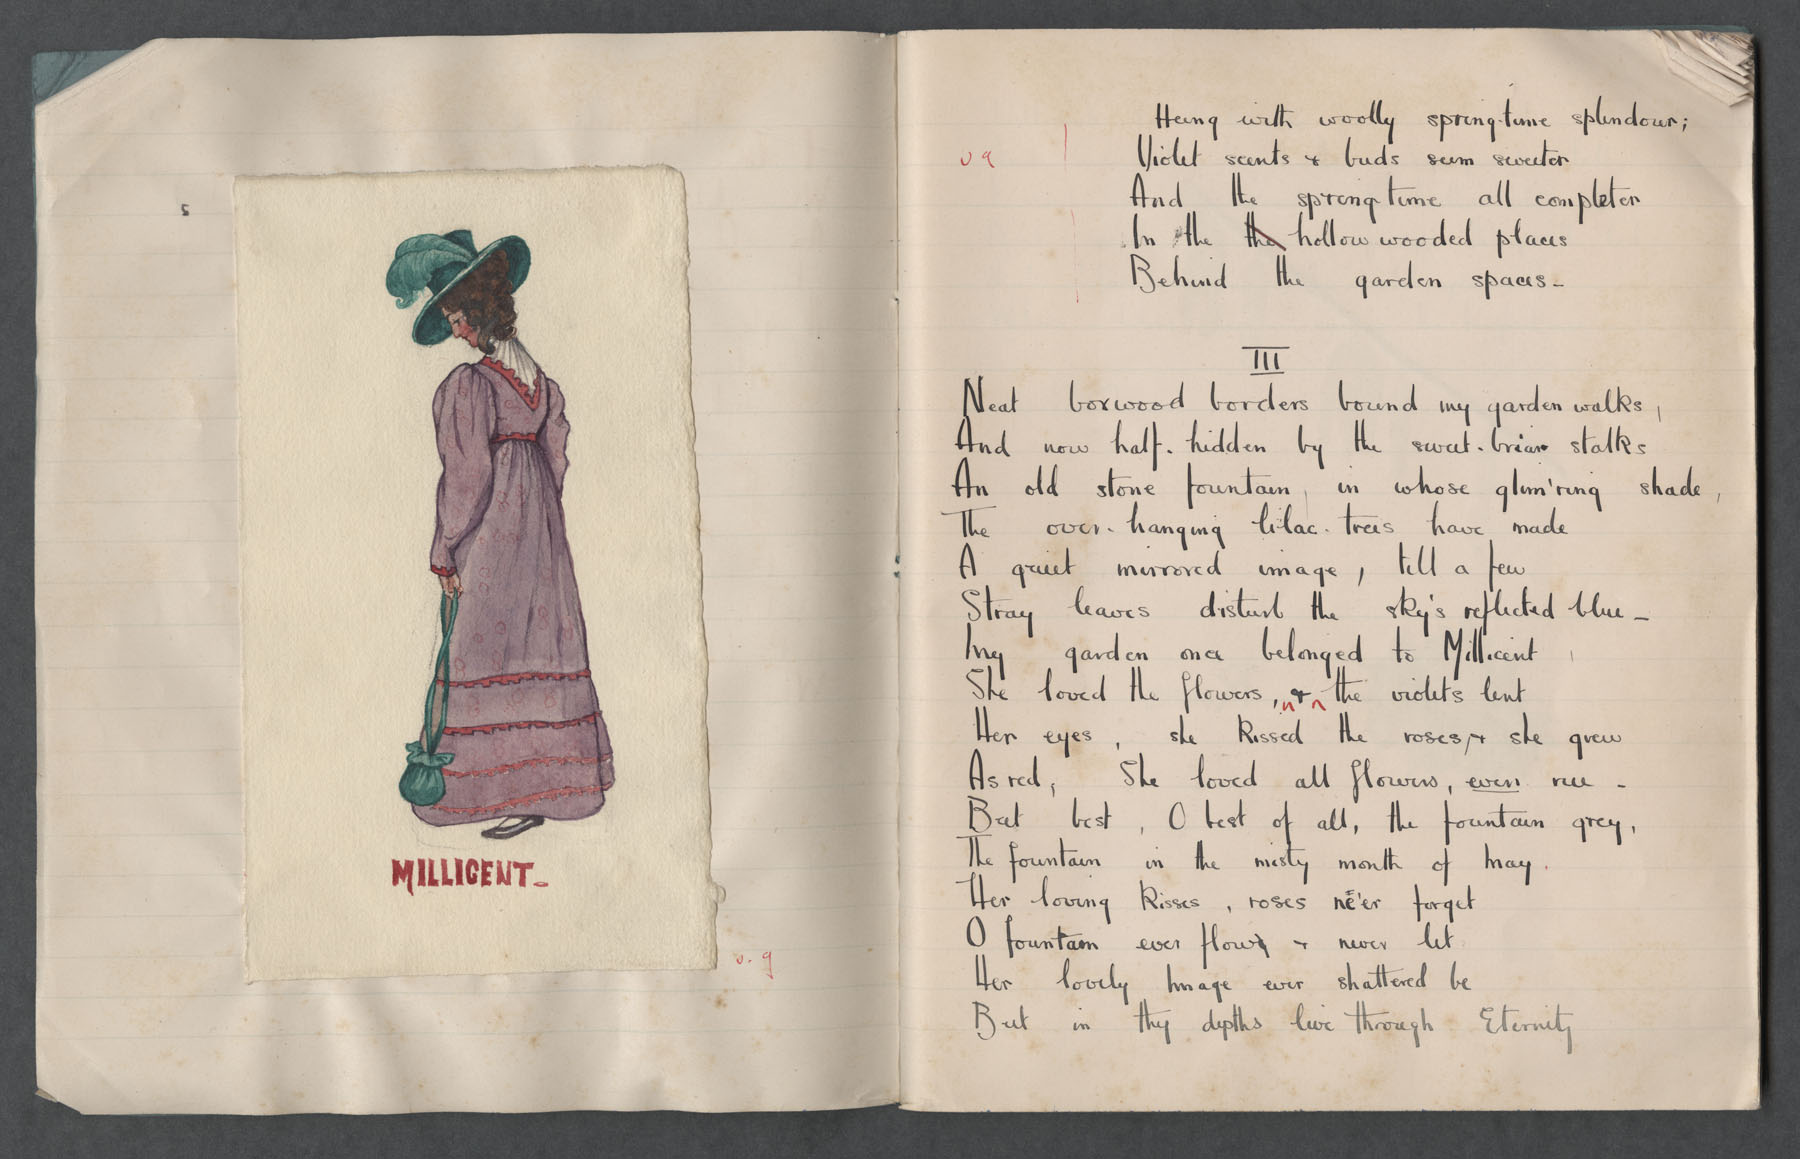 MILLICENT-
v. g
Hung with woolly spring-time splendour;
v g
Violet scents & buds seem sweeter
And the spring-time all completer
In the the hollow wooded places
Behind the garden spaces-
III
Neat boxwood borders bound my garden walks,
And now half-hidden by the sweet-briar stalks
An old stone fountain, in whose glim'ring shade,
The over-hanging lilac-trees have made
A quiet mirrored image, till a few
Stray leaves disturb the sky's reflected blue-
My garden once belonged to Millicent,
She loved the flowers, & the violets lent
Her eyes, she kissed the roses, & she grew
As red; She loved all flowers, even rue-
But best, O best of all, the fountain grey,
The fountain in the misty month of May.
Her loving kisses, roses ne'er forget
O fountain ever flow & never let
Her lovely Image ever shattered be
But in thy depths live through Eternity